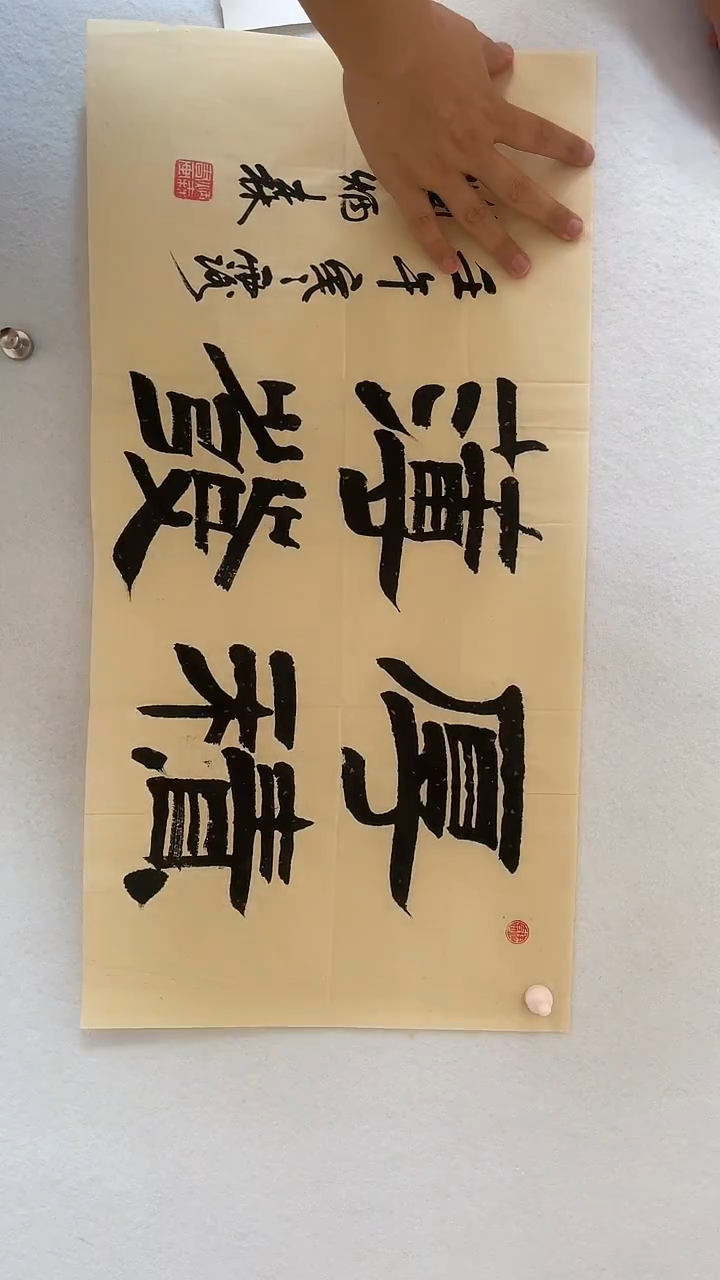 厚積
薄發
壬午
炳森